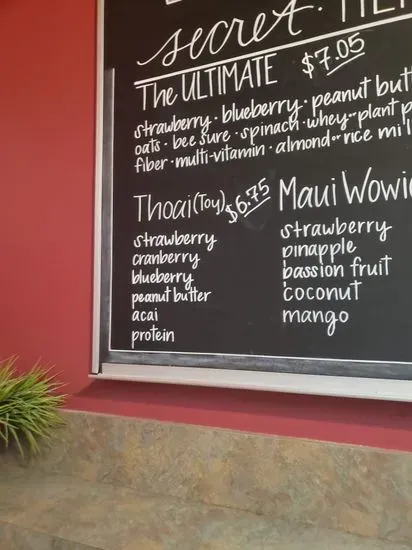 secret
The ULTIMATE $7.05
strawberry · blueberry · peanut but
oats · bee sure · spinach · whey or plant p
fiber · multi-vitamin · almond or rice mil
Thoai (Toy) $6.75
strawberry
cranberry
blueberry
peanut butter
acai
protein
Maui Wowi
strawberry
pinapple
passion fruit
coconut
mango